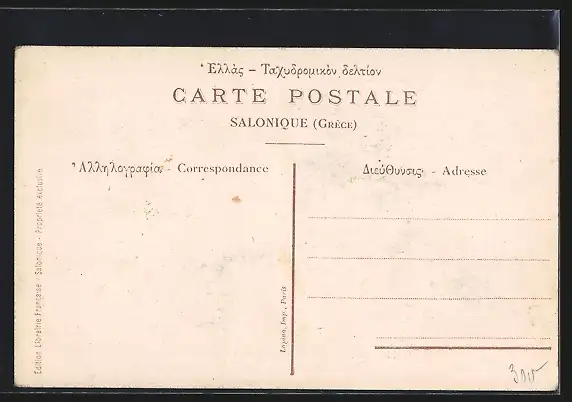 Ἑλλὰς – Ταχυδρομικὸν δελτίον
CARTE POSTALE
SALONIQUE (GRÈCE)
Ἀλληλογραφία - Correspondance
Διεύθυνσις - Adresse
Edition Librairie Française - Salonique - Propriété exclusive
Lapina, Imp., Paris